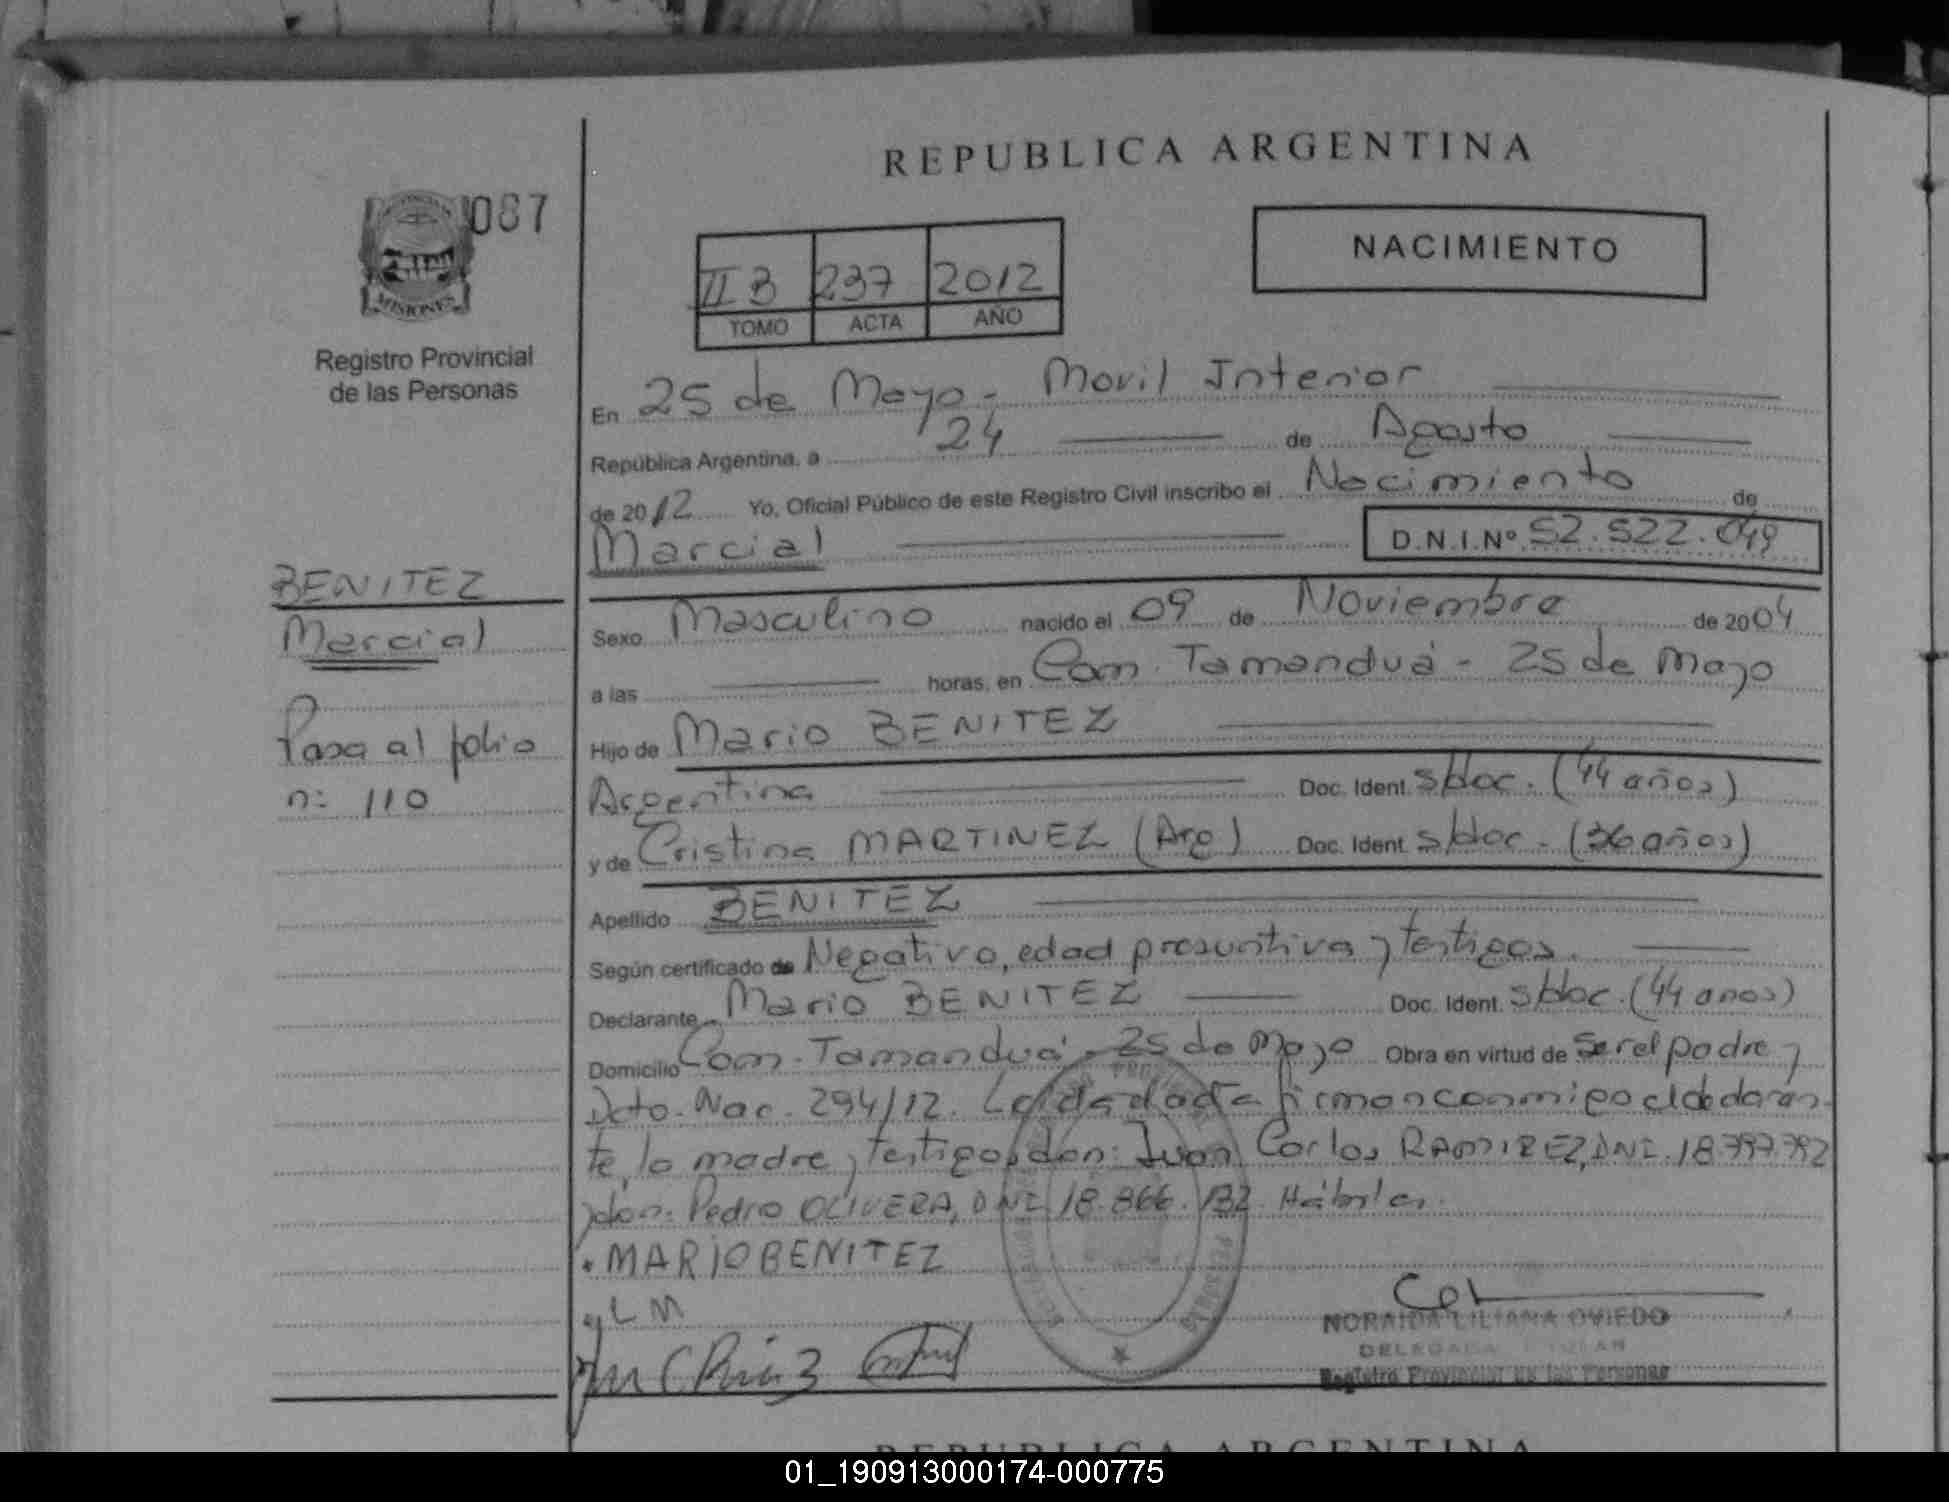 REPUBLICA ARGENTINA
087
MISIONES
Registro Provincial
de las Personas
NACIMIENTO
II B 237 2012
TOMO ACTA AÑO
En 25 de Mayo - Movil Interior
República Argentina, a 24 de Agosto
de 2012 Yo, Oficial Público de este Registro Civil inscribo el Nacimiento de
Marcial D.N.I.Nº 52.522.049
BENITEZ
Marcial
Pasa al folio
n: 110
Sexo Masculino nacido el 09 de Noviembre de 2004
a las horas, en Com. Tamanduá - 25 de Mayo
Hijo de Mario BENITEZ
Argentina Doc. Ident. s/doc. (44 años)
y de Cristina MARTINEZ (Arg) Doc. Ident. s/doc. (36 años)
Apellido BENITEZ
Según certificado de Negativo, edad presuntiva y testigos.
Declarante Mario BENITEZ Doc. Ident. s/doc. (44 anos)
Domicilio Com. Tamanduá - 25 de Mayo Obra en virtud de ser el padre y
Dcto. Nac. 294/12. firman conmigo el declaran-
te, la madre y testigos don: Juan Carlos RAMIREZ, DNI.
y don: Pedro OLIVERA, DNI 18.866.132. Hábiles.
MARIO BENITEZ
LM
NORAIDA LILIANA OVIEDO
DELEGADA TITULAR
Registro Provincial de las Personas
REPUBLICA ARGENTINA
01_190913000174-000775